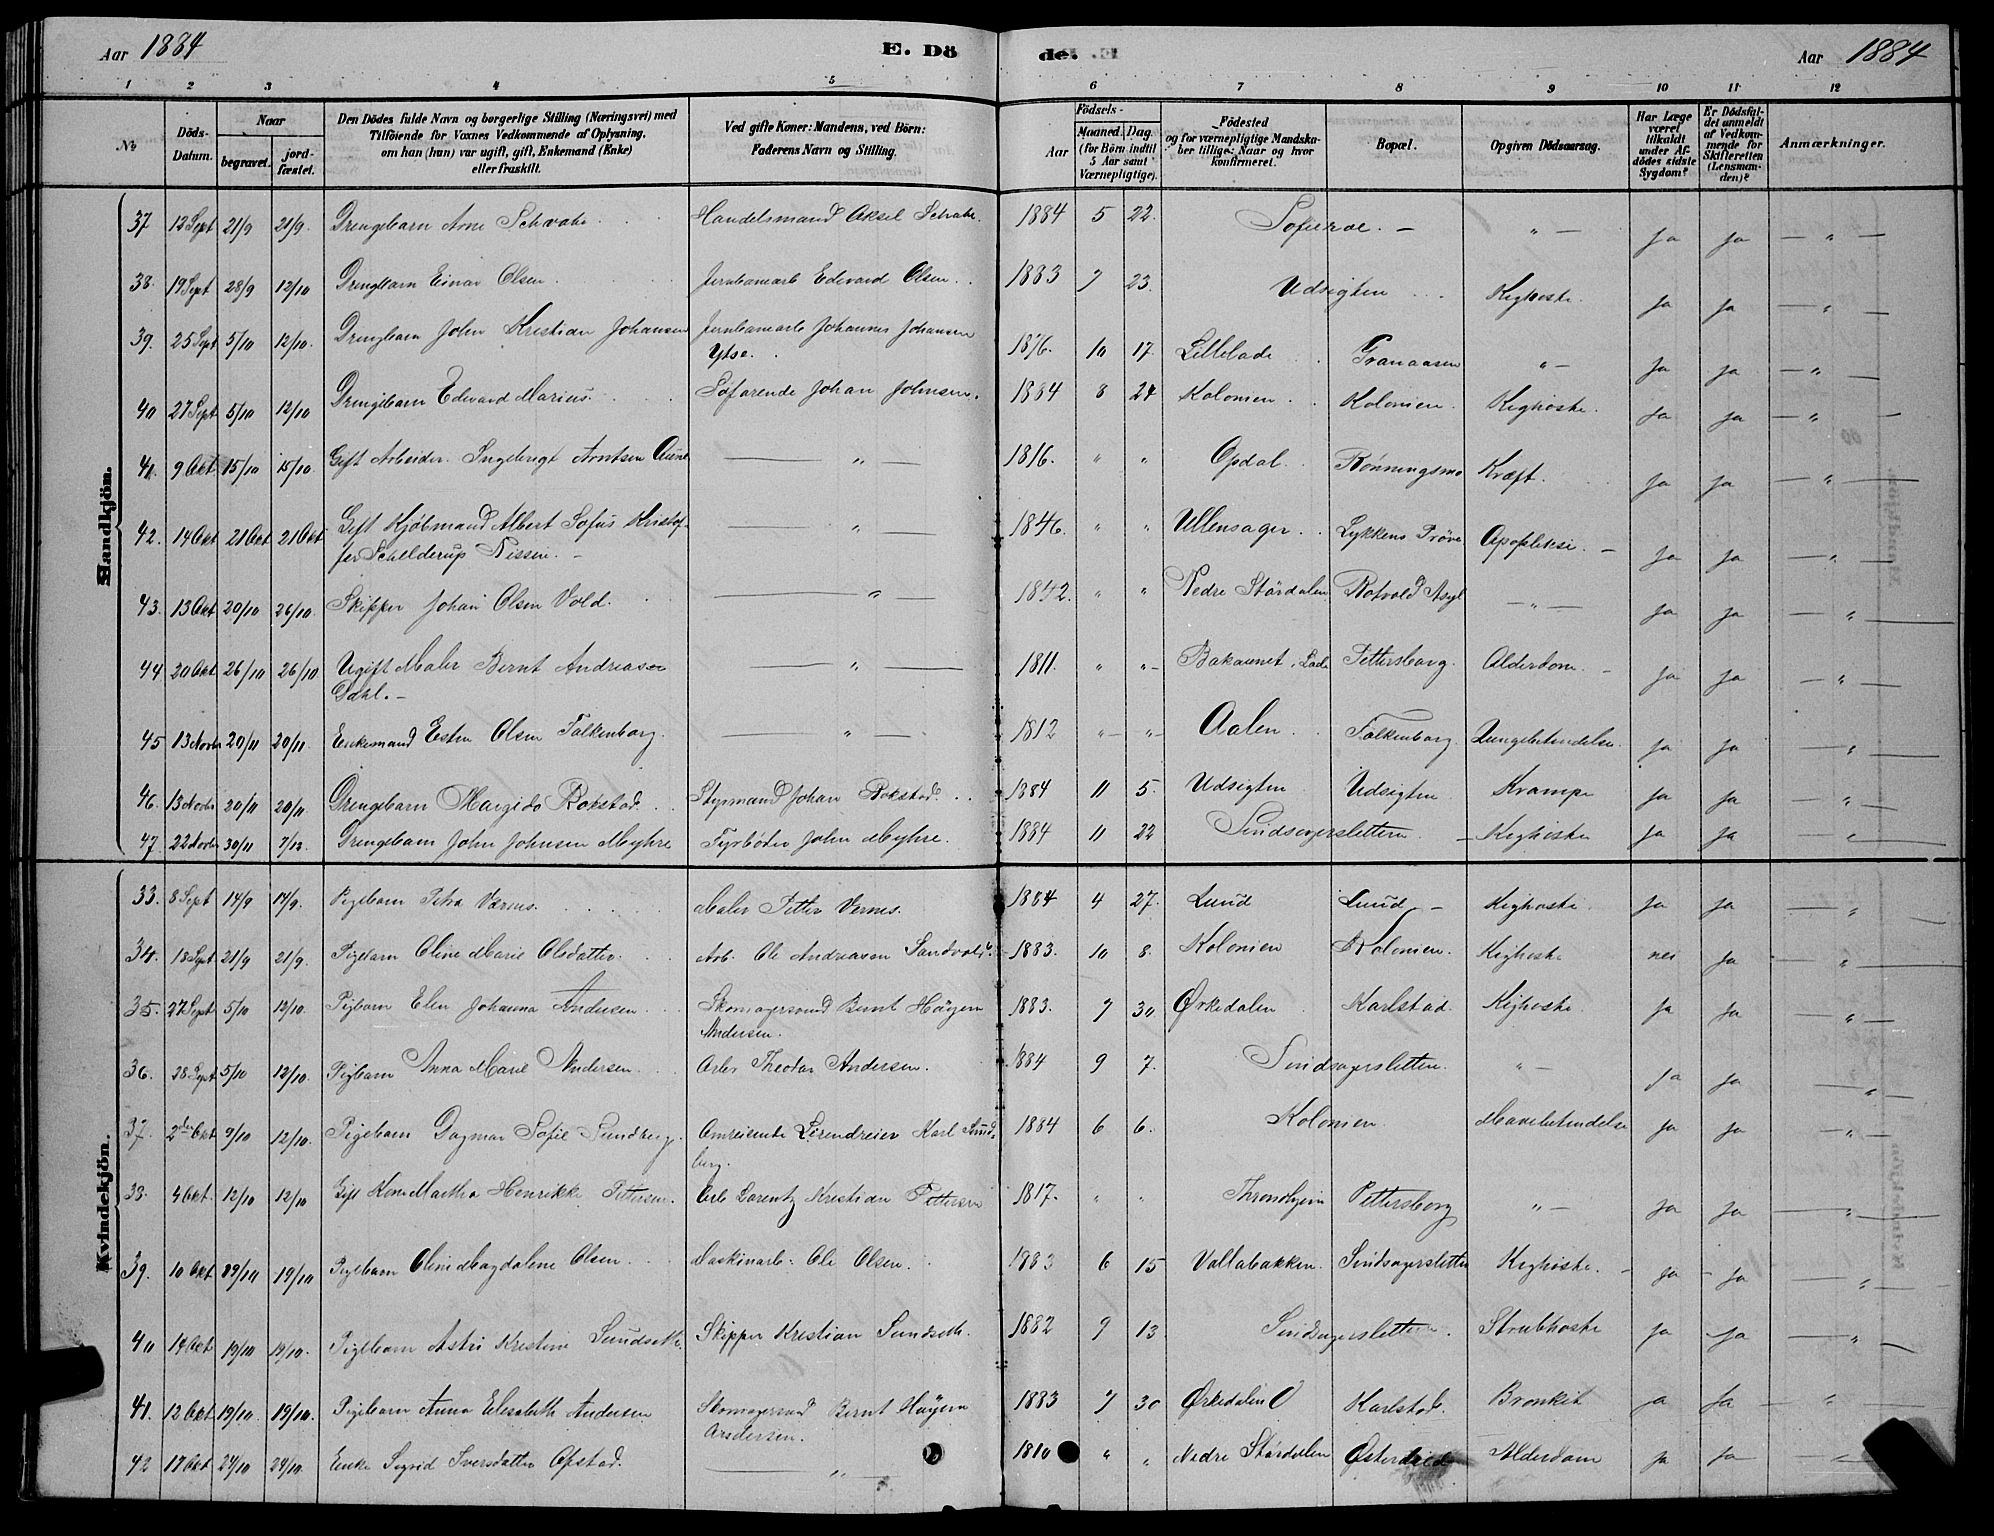 Aar 1884 E. Dö de. Aar 1884
1 2 3 4 5 6 7 8 9 10 11 12
№
Döds-Datum.
Naar
begravet.
jordfæstet.
Den Dödes fulde Navn og borgerlige Stilling (Næringsvei) med
Tilföiende for Voxnes Vedkommende af Oplysning,
om han (hun) var ugift, gift, Enkemand (Enke)
eller fraskilt.
Ved gifte Koner: Mandens, ved Börn:
Faderens Navn og Stilling.
Födsels-
Aar
Maaned. Dag.
(for Börn indtil
5 Aar samt
Værnepligtige).
Födested
og for værnepligtige Mandskaber tillige: Naar og hvor
konfirmeret.
Bopæl.
Opgiven Dödsaarsag.
Har Læge
været
tilkaldt
under Afdödes sidste
Sygdom?
Er Dödsfaldet anmeldt
af Vedkommende for
Skifteretten
(Lensmanden)?
Anmærkninger.
Mandkjön.
37 12 Sept 21/9 21/9. Drengebarn Arne Schwabe Handelsmand Aksel Schabe. 1884 5 22. Sofieroe. — " — Ja Ja — " —
38. 19 Sept 28/9 12/10 Drengebarn Einar Olsen Jernbanearb Edevard Olsen 1883 9 23. Udsigten Kighoste. Ja Ja — " —
39. 25 Sept 5/10 12/10. Drengebarn John Kristian Johansen Jernbanearb Johannes Johansen
Ytse. 1876. 10 17. Lillelade Granaasen " — Ja Ja — " —
40 27 Sept 5/10 12/10 Drengebarn Edevard Marius Söfarende Johan Johnsen. 1884 8 24 Kolonien Kolonien. Kighoste. Ja Ja — " —
41. 9 Okt 15/10 15/10 Gift Arbeider. Ingebrigt Arntsen Aune — " — 1816. " " Opdal. Rönningsmo Kræft. Ja Ja — " —
42. 14 Okt 21 Okt 21 Okt Gift Kjöbmand Albert Sofus Kristoffer Schelderup Nissen. — — " — 1846. " " Ullensager Lykkens Pröve Apopleksi. — Ja Ja — " —
43. 13 Okt 20/10 26/10. Skipper Johan Olsen Vold. — " — 1842. " " Nedre Stördalen Rotvold Asyl — " — Ja Ja — " —
44 20 Okt 26/10 26/10 Ugift Maler Bernt Andreasen
Dahl. — — " — 1811. " " — Bakaunet, Lade Pettersborg. Alderdom. Ja Ja — " —
45 13 Novbr 20/11 20/11. Enkemand Esten Olsen Falkenborg. — " — 1812 " — " — Aalen Falkenborg. Lungebetendelse. Ja Ja — " —
46. 13 Novbr 20/11 20/11 Drengebarn Rokstad. Styrmand Johan Rokstad. 1884 11 5. Udsigten Udsigten Krampe Ja Ja — " —
47. 22 Novbr 30/11 7/12. Drengebarn John Johnsen Myhre Fyrböder John Myhre. 1884 11 22 Sindsagersletten — Kighoste Ja Ja — " —
Kvindekjön.
33. 8 Sept 14/9 14/9. Pigebarn Petra Værnes. Maler Petter Vernes. 1884 4 27. Lund Lund — Kighoste. Ja Ja — " —
34. 18 Sept 21/9 21/9. Pigebarn Oline Marie Olsdatter. Arb. Ole Andreasen Sandvold. 1883. 10 8. Kolonien Kolonien. Kighoste nei Ja — " —
35. 27 Sept 5/10 12/10. Pigbarn Elen Johanna Andersen Skomagersvend Bernt Höyem
Andersen. 1883. 9 30 Ørkedalen Karlstad. Kighoste. Ja Ja — " —
36. 28 Sept 5/10 12/10. Pigbarn Anna Marie Andersen. Arb. Theodor Andersen. 1884 9 7. Sindsagersletten. " — Ja Ja — " —
37. 2den Okt 9/10 12/10. Pigebarn Dagmar Sofie Sundberg. Omreisende Lirendreier Karl Sundberg. 1884 6 6. Kolonien Mavebetendelse Ja Ja — " —
38. 4 Okt. 12/10 12/10 Gift Kone Martha Henrikke Pettersen. Arb Lorentz Kristian Pettersen 1817. " " Throndhjem Pettersborg " — Ja Ja — " —
39. 10 Okt 19/10 19/10 Pigebarn Oline Magdalene Olsen Maskinarb. Ole Olsen. 1883 6 15 Vollabakken. Sindsagersletten Kighoste. — Ja — Ja — " —
40 14 Okt 19/10 19/10. Pigebarn Astri Kristine Sundseth. Skipper Kristian Sundseth. 1882 9 13 Sindsagersletten. Strubhoste Ja Ja — " —
41. 12 Okt 19/10. 19/10. Pigebarn Anna Elesabeth Andersen Skomagersvd Bernt Höyem
Andersen. 1883 9 30 Ørkedalen Karlstad. Bronkit ja Ja — " —
42 17 Okt 24/10 24/10. Enke Sigrid Iversdatter Opstad. — " — 1810 " " Nedre Stördalen Alderdom Ja Ja —